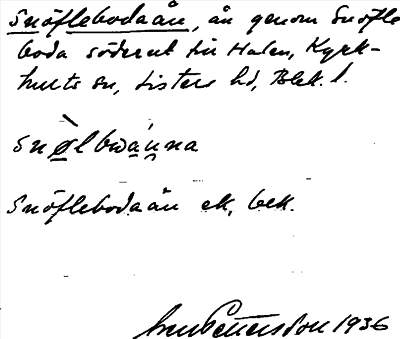 Snöflebodaån, ån genom Snöfle
boda söderut till Halen, Kyrk-
hults sn, Listers hd, Blek. l.
snø̀lbwánna
Snöflebodaån ek, bek.
Pettersson 1936